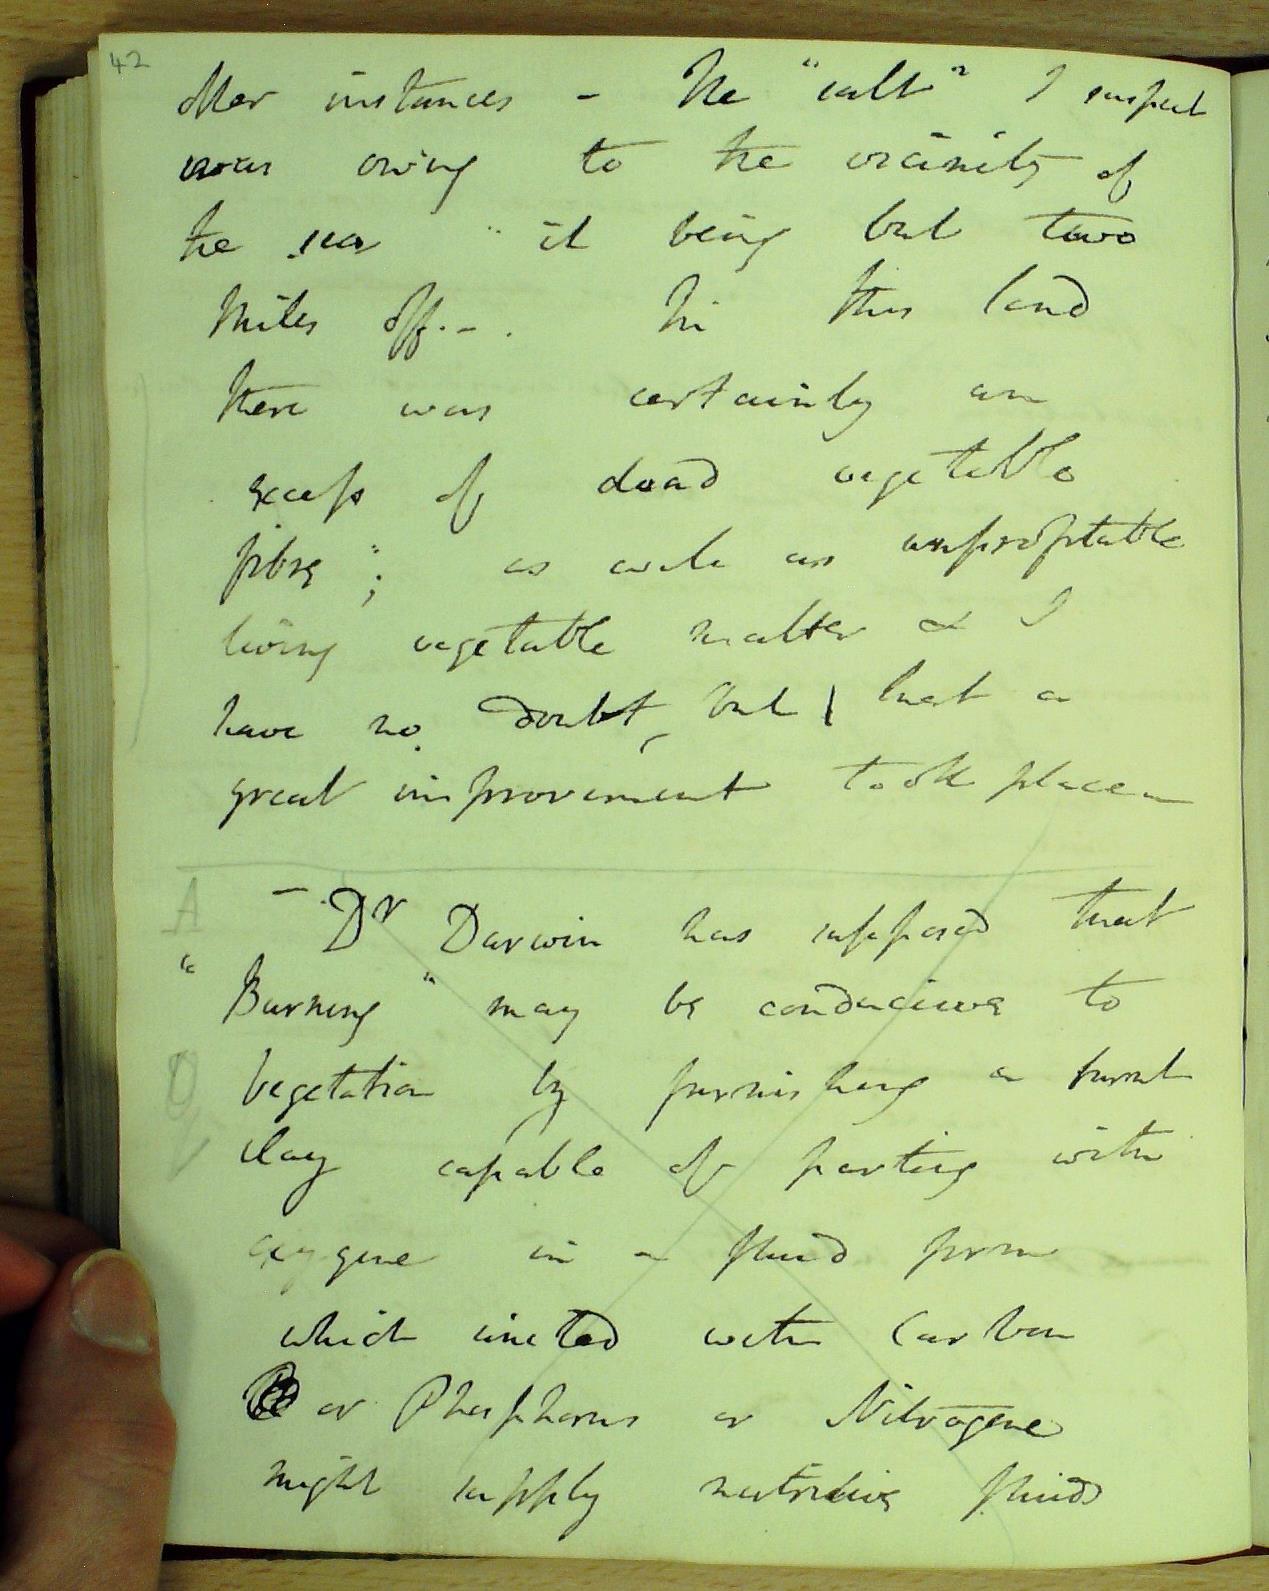 42
other instances - the "salt" I suspect
was owing to the vicinity of
the sea - it being but two
Miles off.-. In this land
there was certainly an
excess of dead vegetable
fibre; as well as unprofitable
living vegetable matter & I
have no doubt, but that a
great improvement took place
A
- Dr Darwin has supposed that
"Burning" may be conducive to
Vegetation by furnishing a burnt
clay capable of parting with
oxygene in a fluid form
which united with Carbon
or Phosphorus or Nitrogene
might supply nutritive fluids